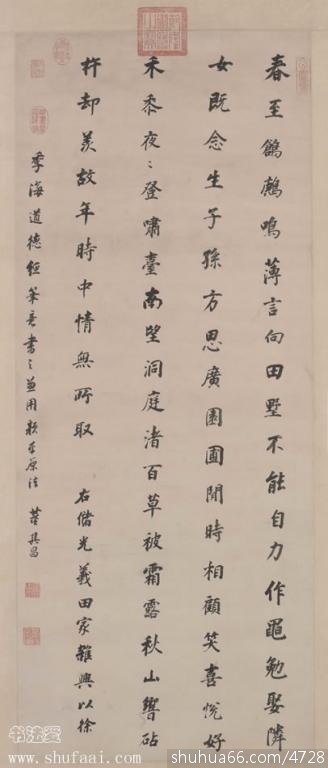 春至鶬鶊鳴薄言向田墅不能自力作黽勉娶隣
女既念生子孫方思廣園圃閒時相顧笑喜悅好
禾黍夜〻登嘯臺南望洞庭渚百草被霜露秋山響砧
杵却羨故年時中情無所取 右儲光羲田家雜興以徐
季海道德經筆意書之兼用 原法 董其昌
书法爱
www.shufaai.com
shuhua66.com/4728